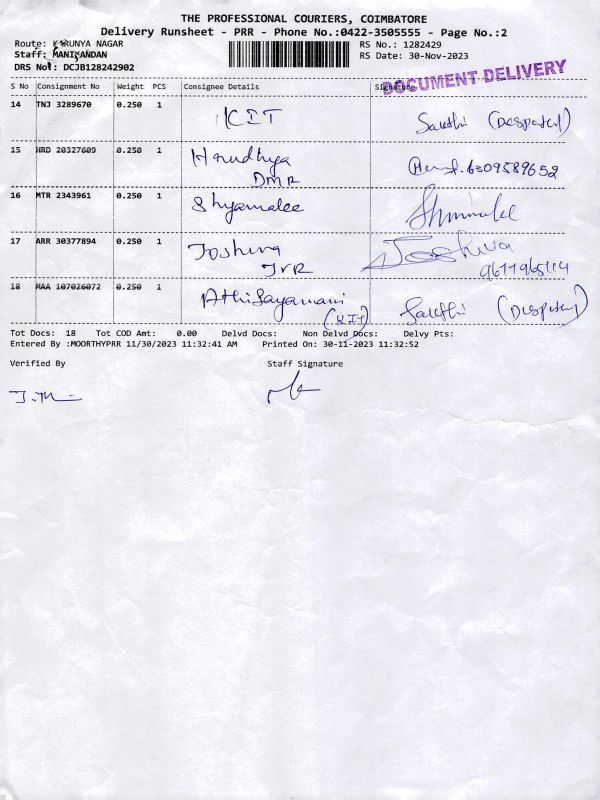 THE PROFESSIONAL COURIERS, COIMBATORE
Delivery Runsheet - PRR - Phone No.:0422-3505555 - Page No.:2
Route: KARUNYA NAGAR
RS No.: 1282429
Staff: MANIKANDAN
RS Date: 30-Nov-2023
DRS No!: DCJB128242902
DOCUMENT DELIVERY
S No Consignment No Weight PCS Consignee Details Signature
14 TNJ 3289670 0.250 1 KIT Sakthi (Despatch)
15 HRD 20327609 0.250 1 Harudhya 6309589652
DMR
16 MTR 2343961 0.250 1 Shyamalee
17 ARR 30377894 0.250 1 Joshuva Joshuva
JVR 9677965114
18 MAA 107026072 0.250 1 Athisayamani Sakthi (Despatch)
(KIT)
Tot Docs: 18 Tot COD Amt: 0.00 Delvd Docs: Non Delvd Docs: Delvy Pts:
Entered By :MOORTHYPRR 11/30/2023 11:32:41 AM Printed On: 30-11-2023 11:32:52
Verified By Staff Signature